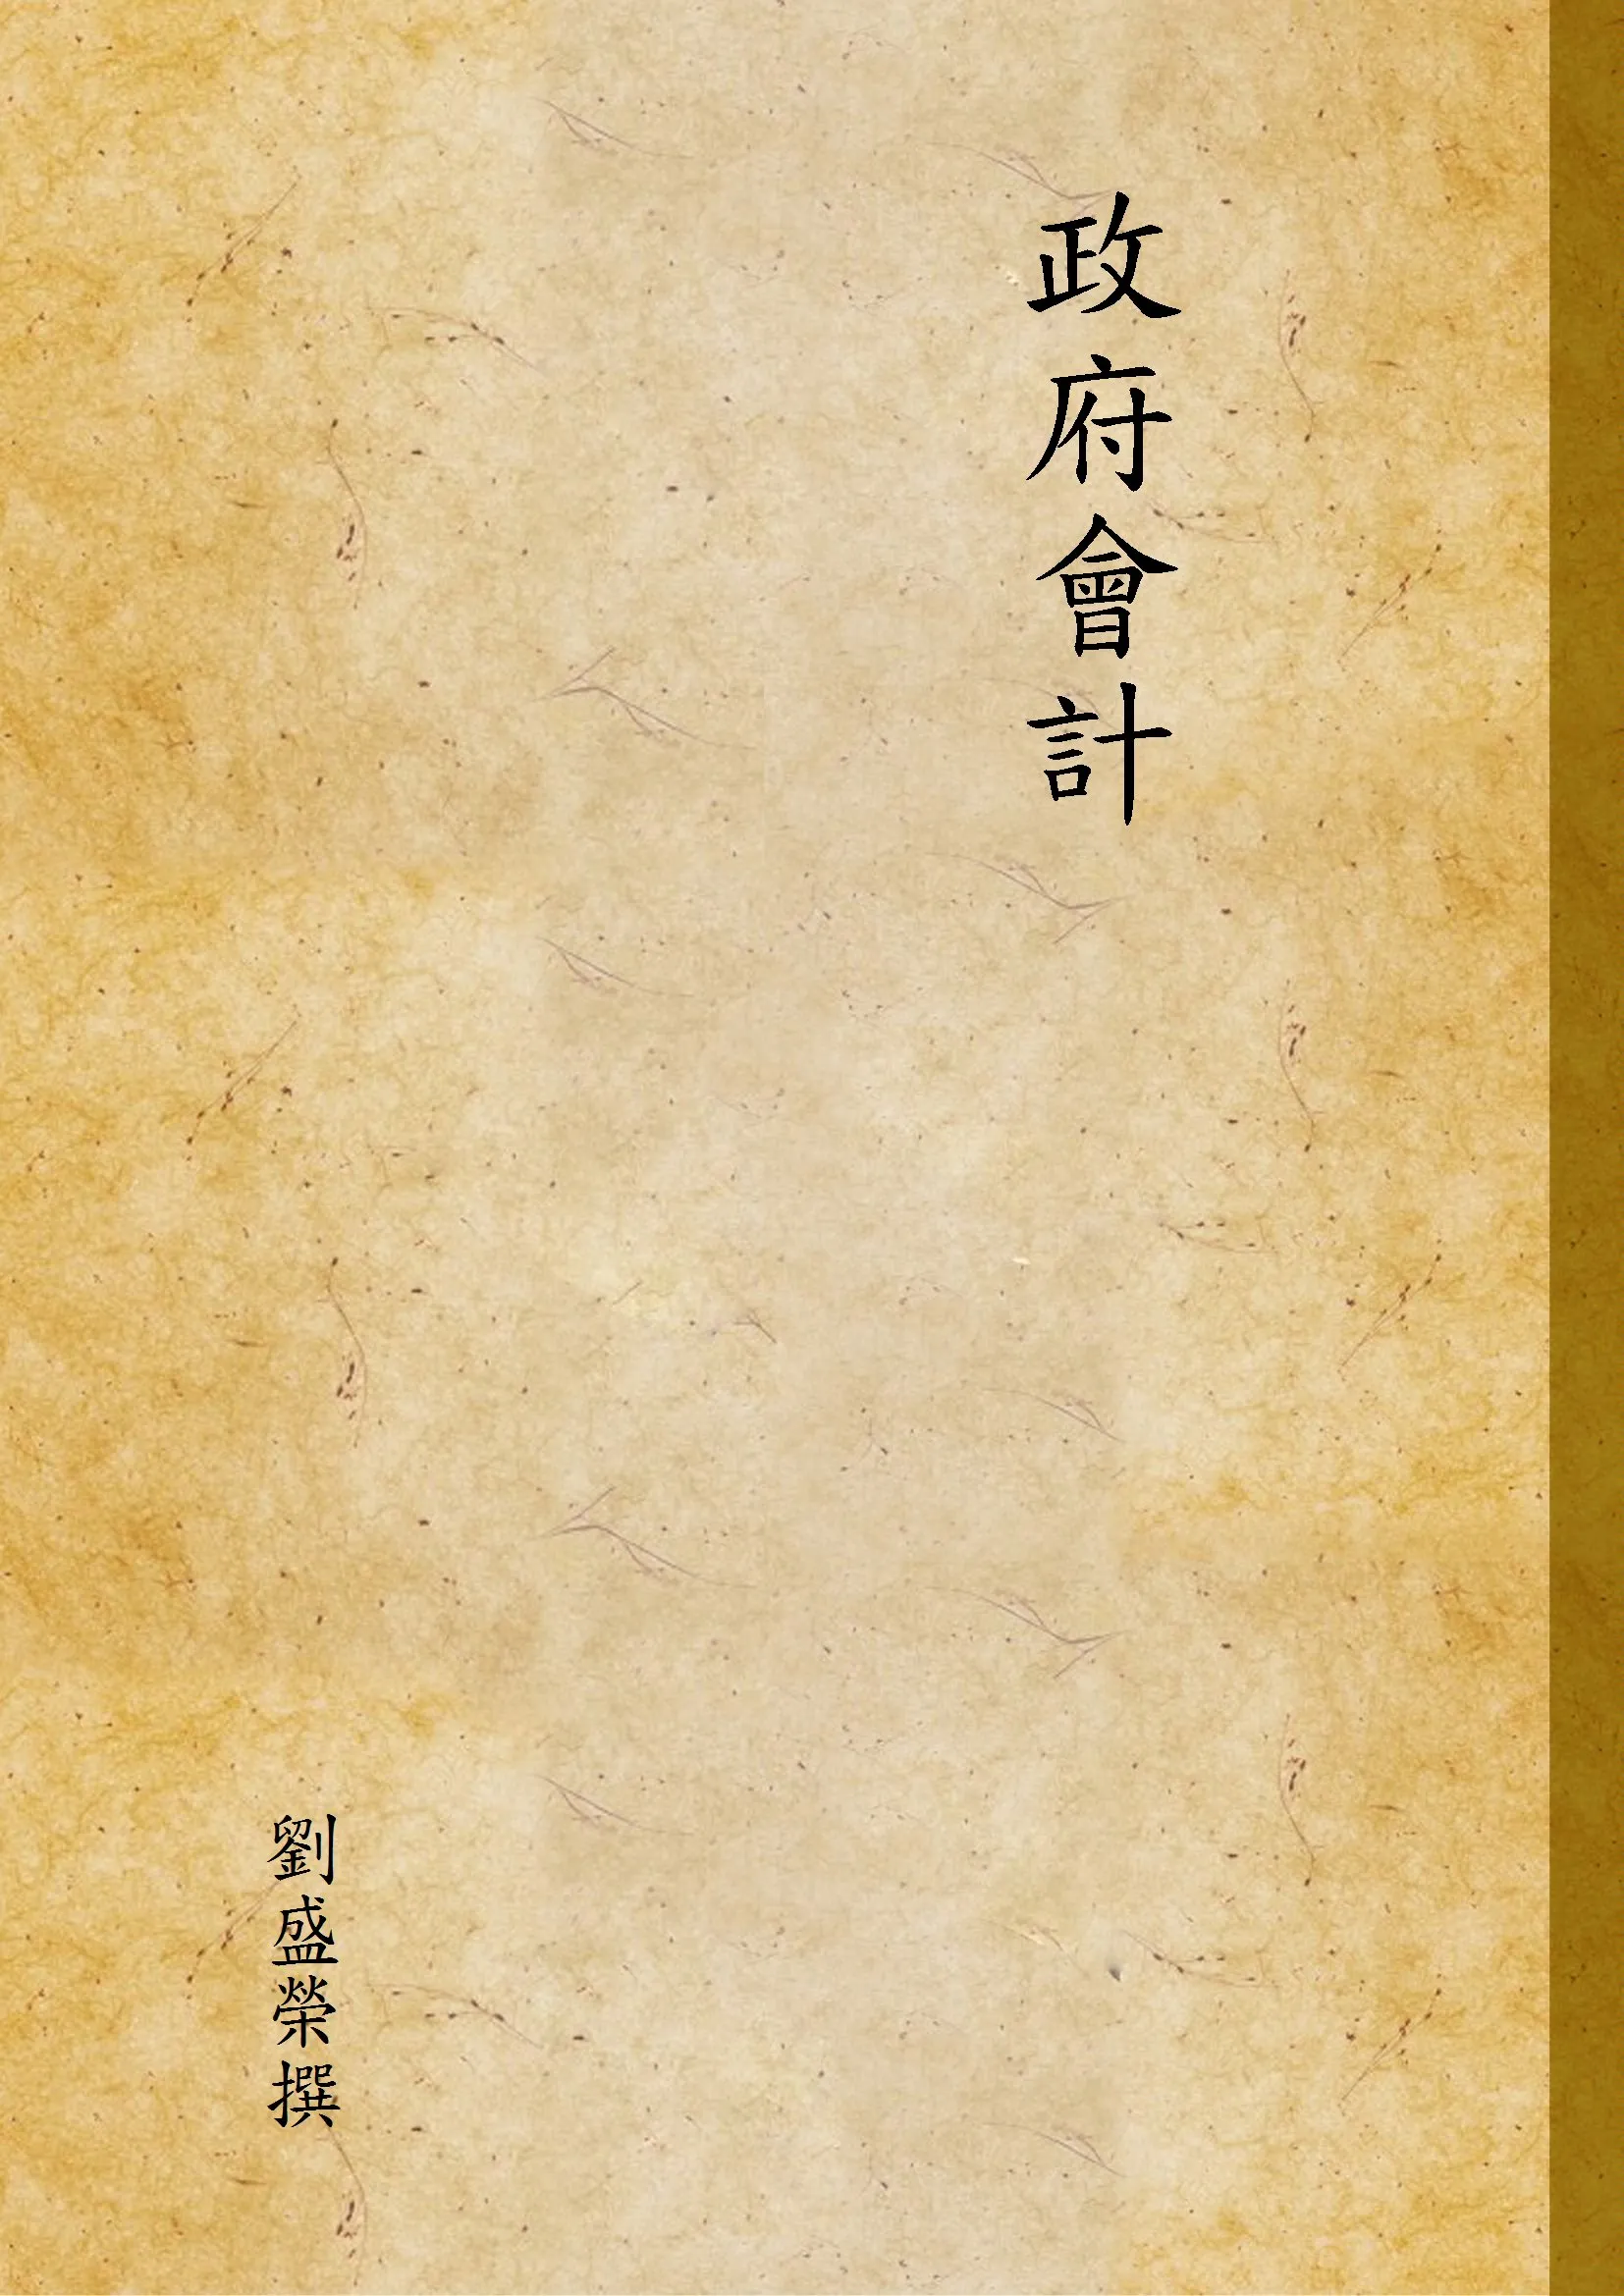 政府會計
劉盛榮撰